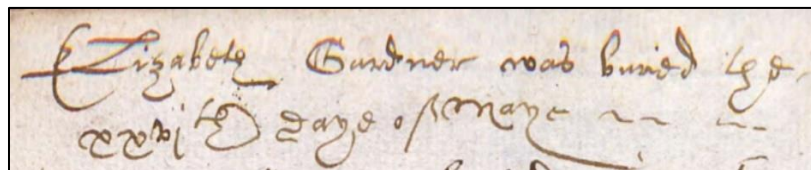 Elizabeth Gardner was buried the
xxvith daye of Maye